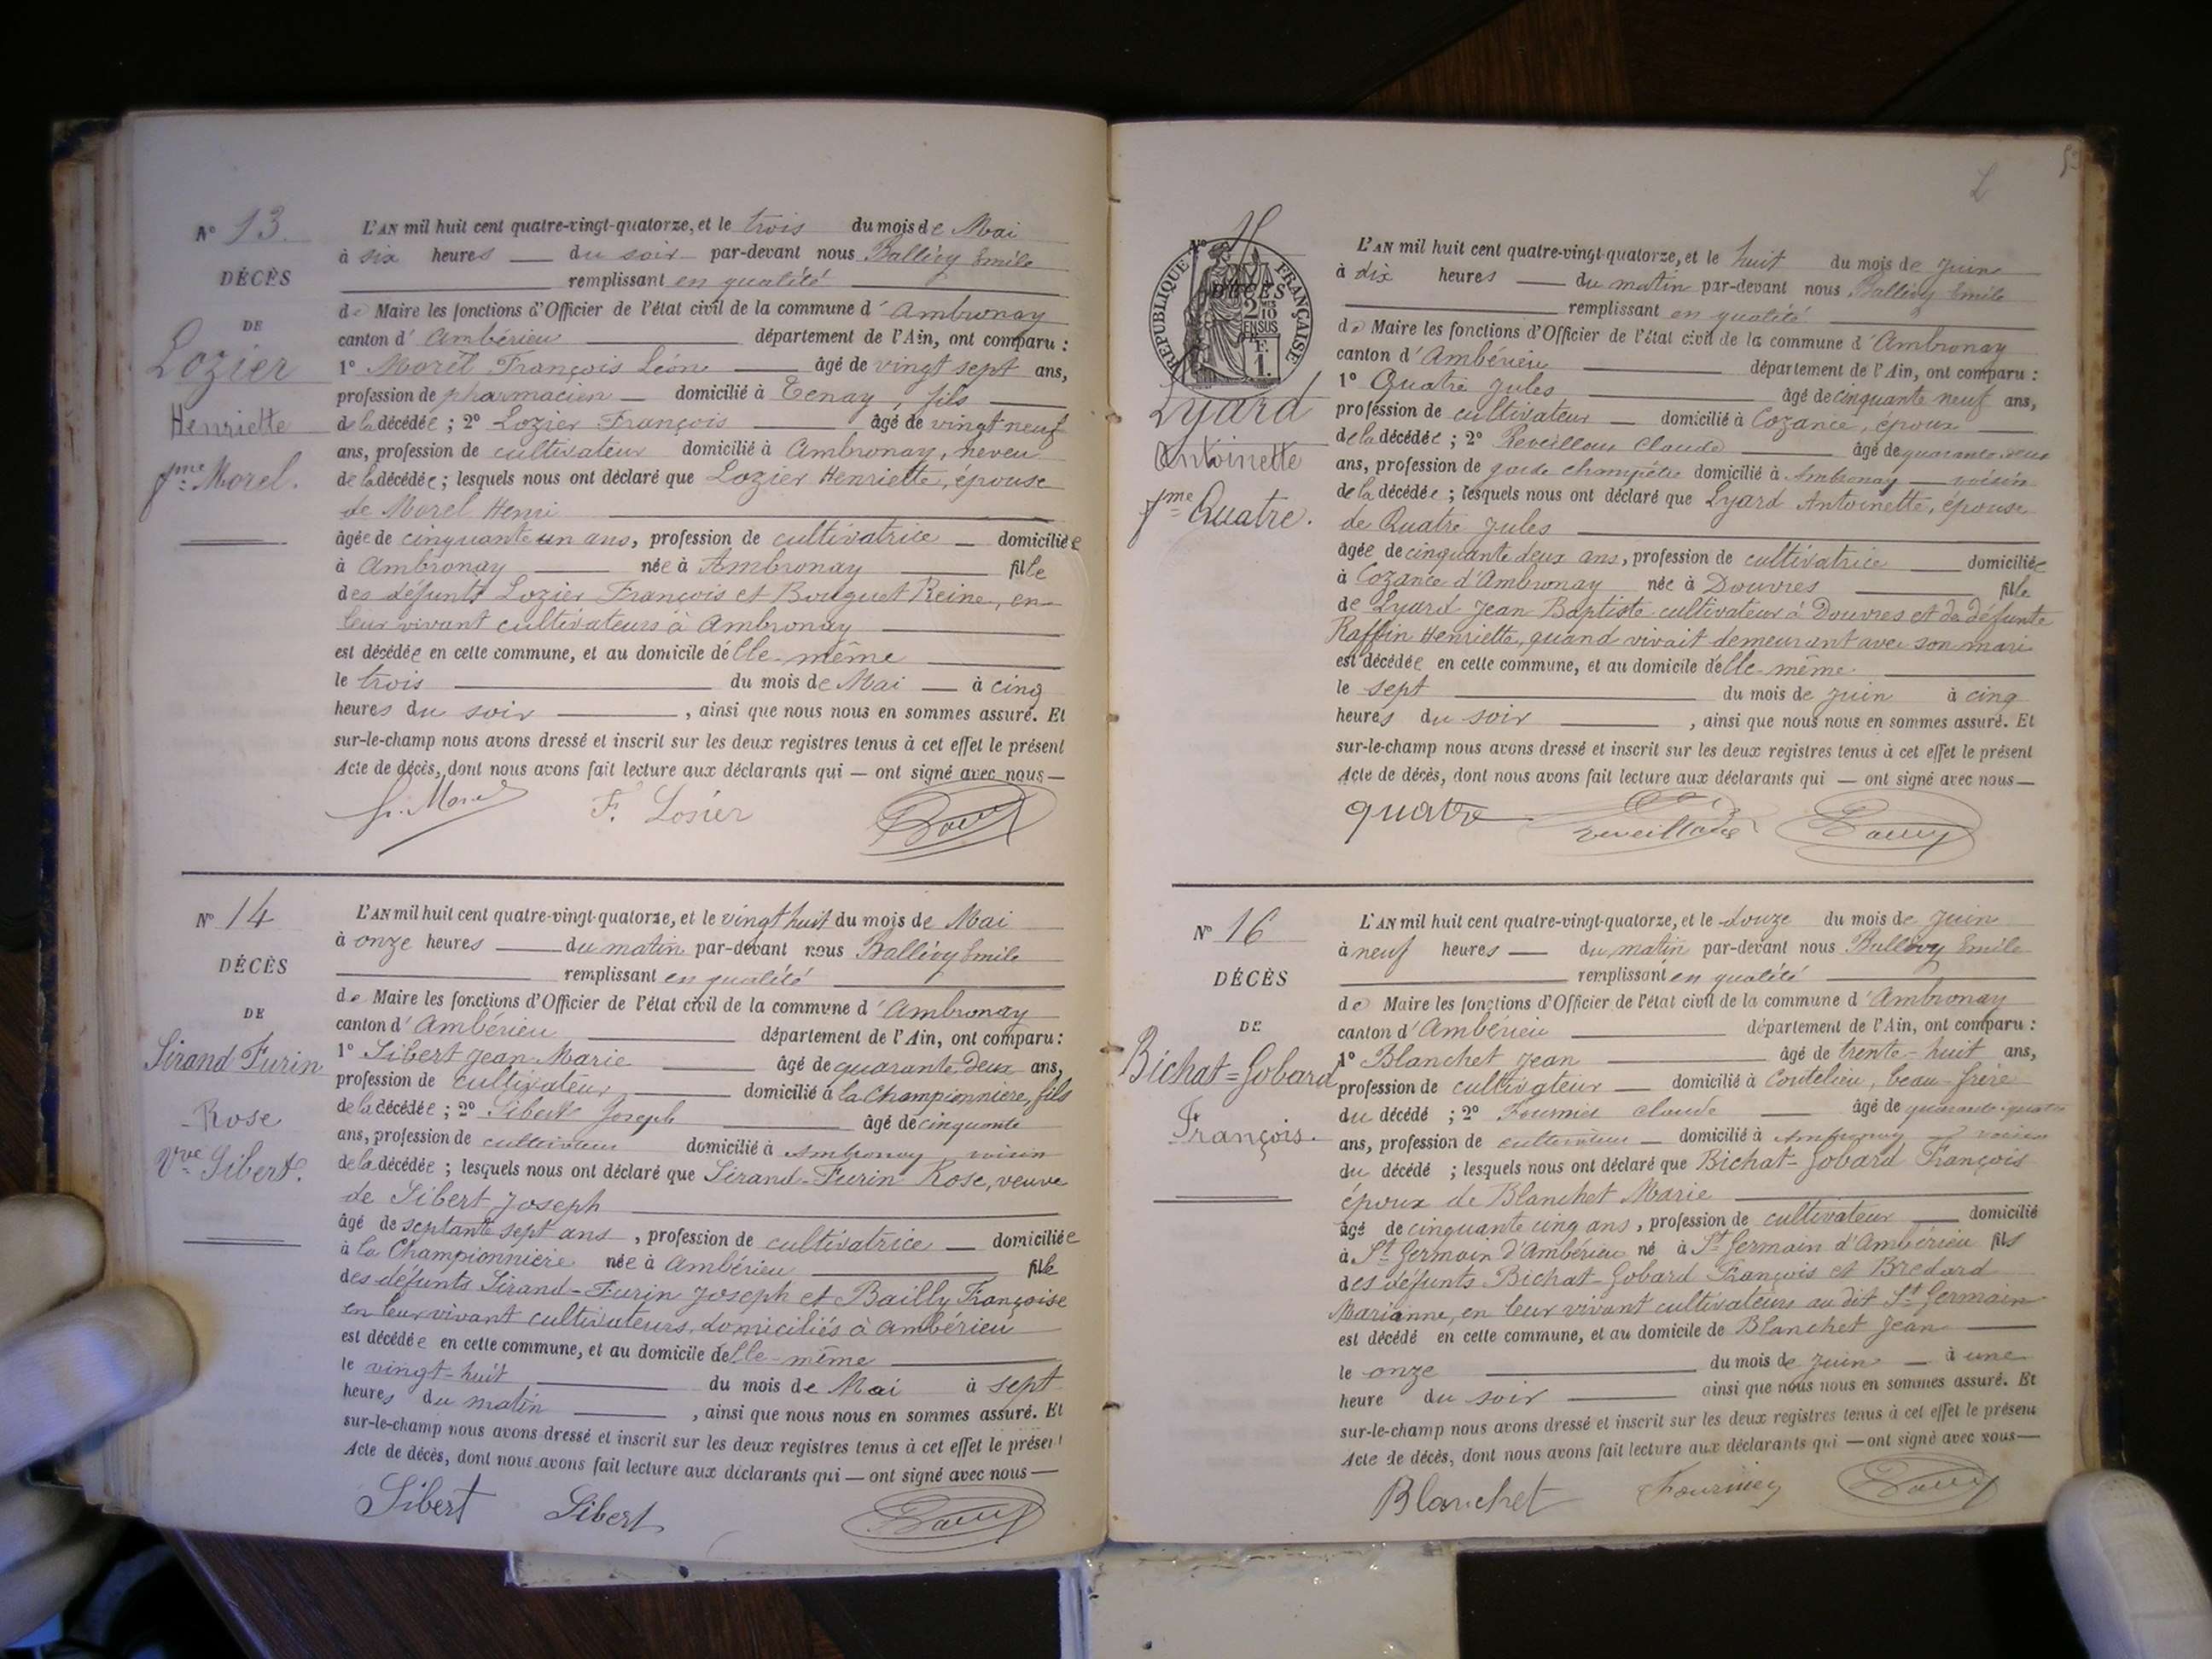 N° 13.
DÉCÈS
DE
Lozier
Henriette
fme Morel.
L'AN mil huit cent quatre-vingt-quatorze, et le trois du mois de Mai
à six heures du soir par-devant nous Ballévy Emile
remplissant en qualité
de Maire les fonctions d'Officier de l'état civil de la commune d'Ambronay
canton d'Ambérieu département de l'Ain, ont comparu :
1° Morel François Léon âgé de vingt sept ans,
profession de pharmacien domicilié à Tenay, fils
de la décédée ; 2° Lozier François âgé de vingt neuf
ans, profession de cultivateur domicilié à Ambronay, neveu
de la décédée ; lesquels nous ont déclaré que Lozier Henriette, épouse
de Morel Henri
âgée de cinquante un ans, profession de cultivatrice domiciliée
à Ambronay née à Ambronay fille
des défunts Lozier François et Bouguet Reine, en
leur vivant cultivateurs à Ambronay
est décédée en cette commune, et au domicile d'elle-même
le trois du mois de Mai à cinq
heures du soir , ainsi que nous nous en sommes assuré. Et
sur-le-champ nous avons dressé et inscrit sur les deux registres tenus à cet effet le présent
Acte de décès, dont nous avons fait lecture aux déclarants qui — ont signé avec nous —
Morel F. Losier
N° 14
DÉCÈS
DE
Sirand Furin
Rose
Vve Sibert.
L'AN mil huit cent quatre-vingt-quatorze, et le vingt huit du mois de Mai
à onze heures du matin par-devant nous Ballévy Emile
remplissant en qualité
de Maire les fonctions d'Officier de l'état civil de la commune d'Ambronay
canton d'Ambérieu département de l'Ain, ont comparu :
1° Sibert Jean-Marie âgé de quarante-deux ans,
profession de cultivateur domicilié à la Championnière, fils
de la décédée ; 2° Sibert Joseph âgé de cinquante
ans, profession de cultivateur domicilié à Ambronay voisin
de la décédée ; lesquels nous ont déclaré que Sirand-Furin Rose, veuve
de Sibert Joseph
âgé de septante sept ans , profession de cultivatrice domiciliée
à la Championnière née à Ambérieu fille
des défunts Sirand-Furin Joseph et Bailly Françoise
en leur vivant cultivateurs, domiciliés à Ambérieu
est décédée en cette commune, et au domicile d'elle-même
le vingt-huit du mois de Mai à sept
heures du matin , ainsi que nous nous en sommes assuré. Et
sur-le-champ nous avons dressé et inscrit sur les deux registres tenus à cet effet le présent
Acte de décès, dont nous avons fait lecture aux déclarants qui — ont signé avec nous —
Sibert Sibert
N°
RÉPUBLIQUE FRANÇAISE
DÉCÈS
2 MES
10
EN SUS
F.
1.
Lyard
Antoinette
fme Quatre.
L'AN mil huit cent quatre-vingt-quatorze, et le huit du mois de Juin
à dix heures du matin par-devant nous Ballévy Emile
remplissant en qualité
de Maire les fonctions d'Officier de l'état civil de la commune d'Ambronay
canton d'Ambérieu département de l'Ain, ont comparu :
1° Quatre Jules âgé de cinquante neuf ans,
profession de cultivateur domicilié à Cozance, époux
de la décédée ; 2° Reveilloux Claude âgé de quarante-deux
ans, profession de garde champêtre domicilié à Ambronay voisin
de la décédée ; lesquels nous ont déclaré que Lyard Antoinette, épouse
de Quatre Jules
âgée de cinquante deux ans, profession de cultivatrice domiciliée
à Cozance d'Ambronay née à Douvres fille
de Lyard Jean Baptiste cultivateur à Douvres et de défunte
Raffin Henriette, quand vivait demeurant avec son mari
est décédée en cette commune, et au domicile d'elle-même
le sept du mois de Juin à cinq
heures du soir , ainsi que nous nous en sommes assuré. Et
sur-le-champ nous avons dressé et inscrit sur les deux registres tenus à cet effet le présent
Acte de décès, dont nous avons fait lecture aux déclarants qui — ont signé avec nous —
quatre
N° 16
DÉCÈS
DE
Bichat=Gobard
François.
L'AN mil huit cent quatre-vingt-quatorze, et le douze du mois de Juin
à neuf heures du matin par-devant nous Ballévy Emile
remplissant en qualité
de Maire les fonctions d'Officier de l'état civil de la commune d'Ambronay
canton d'Ambérieu département de l'Ain, ont comparu :
1° Blanchet Jean âgé de trente-huit ans,
profession de cultivateur domicilié à Coutelieu, beau-frère
du décédé ; 2° Fournier Claude âgé de quarante-quatre
ans, profession de cultivateur domicilié à Ambronay voisin
du décédé ; lesquels nous ont déclaré que Bichat-Gobard François
époux de Blanchet Marie
âgé de cinquante cinq ans, profession de cultivateur domicilié
à St Germain d'Ambérieu né à St Germain d'Ambérieu fils
des défunts Bichat-Gobard François et Bredard
Marianne, en leur vivant cultivateurs au dit St Germain
est décédé en cette commune, et au domicile de Blanchet Jean
le onze du mois de Juin à une
heure du soir ainsi que nous nous en sommes assuré. Et
sur-le-champ nous avons dressé et inscrit sur les deux registres tenus à cet effet le présent
Acte de décès, dont nous avons fait lecture aux déclarants qui — ont signé avec nous —
Blanchet Fournier